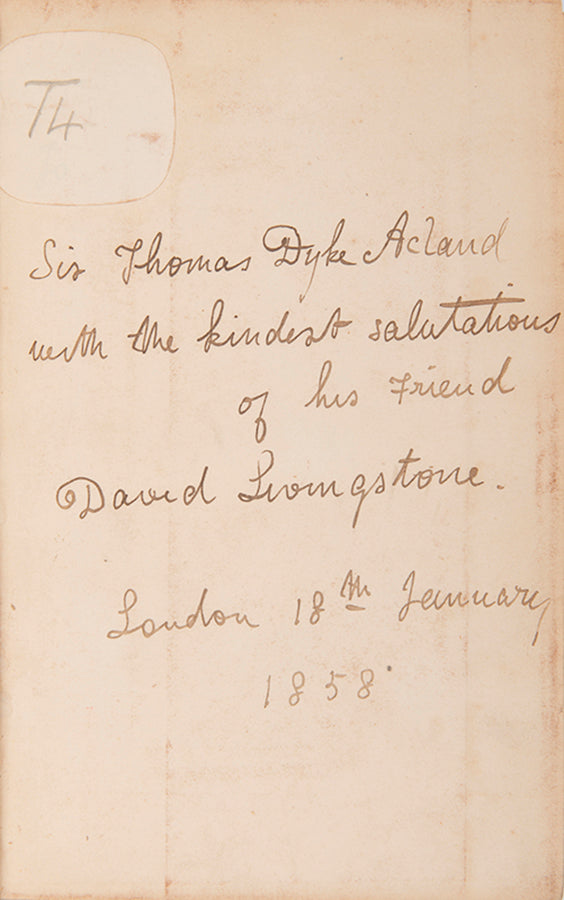 T4
Sir Thomas Dyke Acland
with the kindest salutations
of his Friend
David Livingstone.
London 18th January
1858.